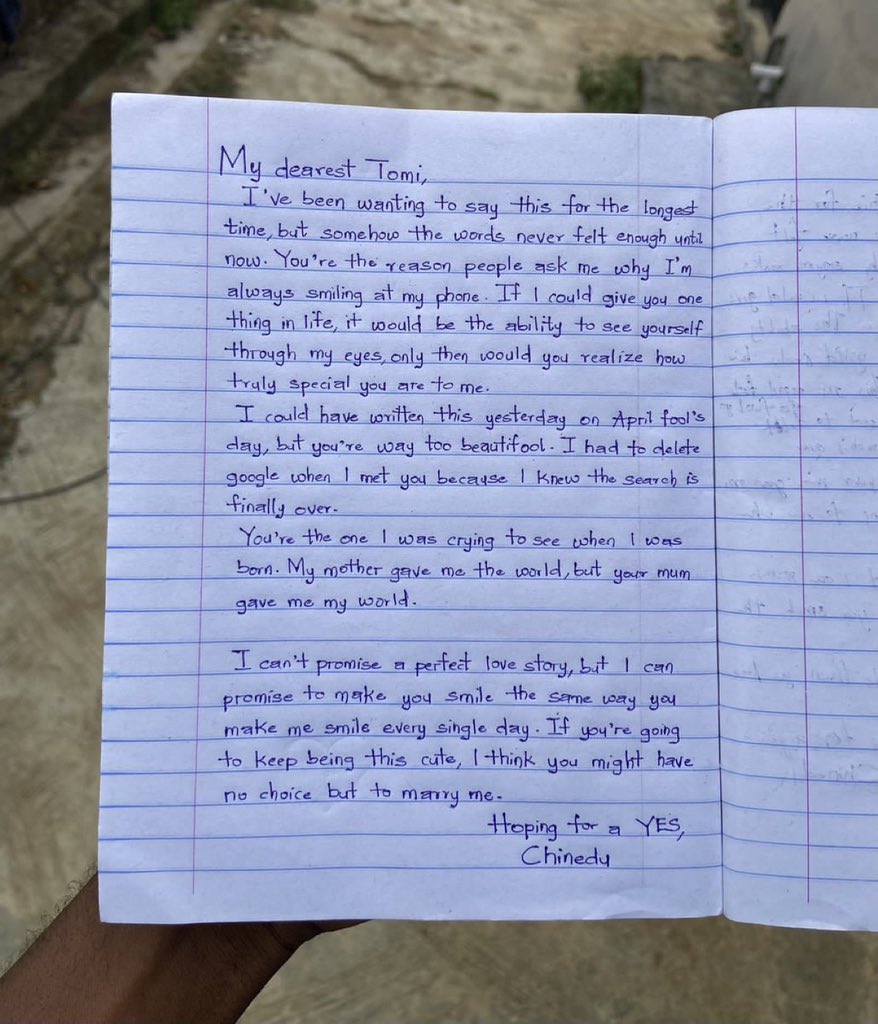 My dearest Tomi,
I've been wanting to say this for the longest
time, but somehow the words never felt enough until
now. You're the reason people ask me why I'm
always smiling at my phone. If I could give you one
thing in life, it would be the ability to see yourself
through my eyes, only then would you realize how
truly special you are to me.
I could have written this yesterday on April fool's
day, but you're way too beautifool. I had to delete
google when I met you because I knew the search is
finally over.
You're the one I was crying to see when I was
born. My mother gave me the world, but your mum
gave me my world.
I can't promise a perfect love story, but I can
promise to make you smile the same way you
make me smile every single day. If you're going
to keep being this cute, I think you might have
no choice but to marry me.
Hoping for a YES,
Chinedu